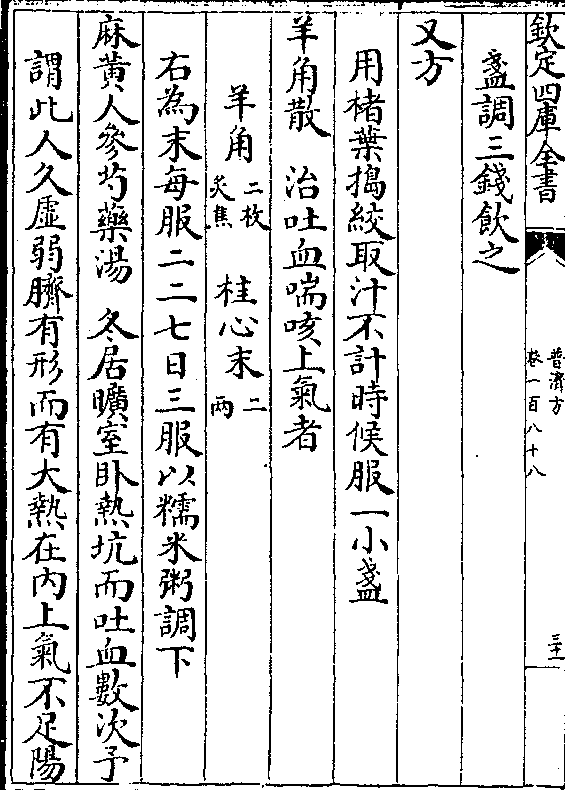 欽定四庫全書
普濟方
卷一百八十八
三十一
盞調三錢飲之
又方
用楮葉搗絞取汁不計時候服一小盞
羊角散 治吐血喘咳上氣者
羊角二枚炙焦 桂心末二兩
右為末每服二二七日三服以糯米粥調下
麻黃人參芍藥湯 冬居曠室卧熱坑而吐血數次予
謂此人久虛弱臍有形而有大熱在內上氣不足陽